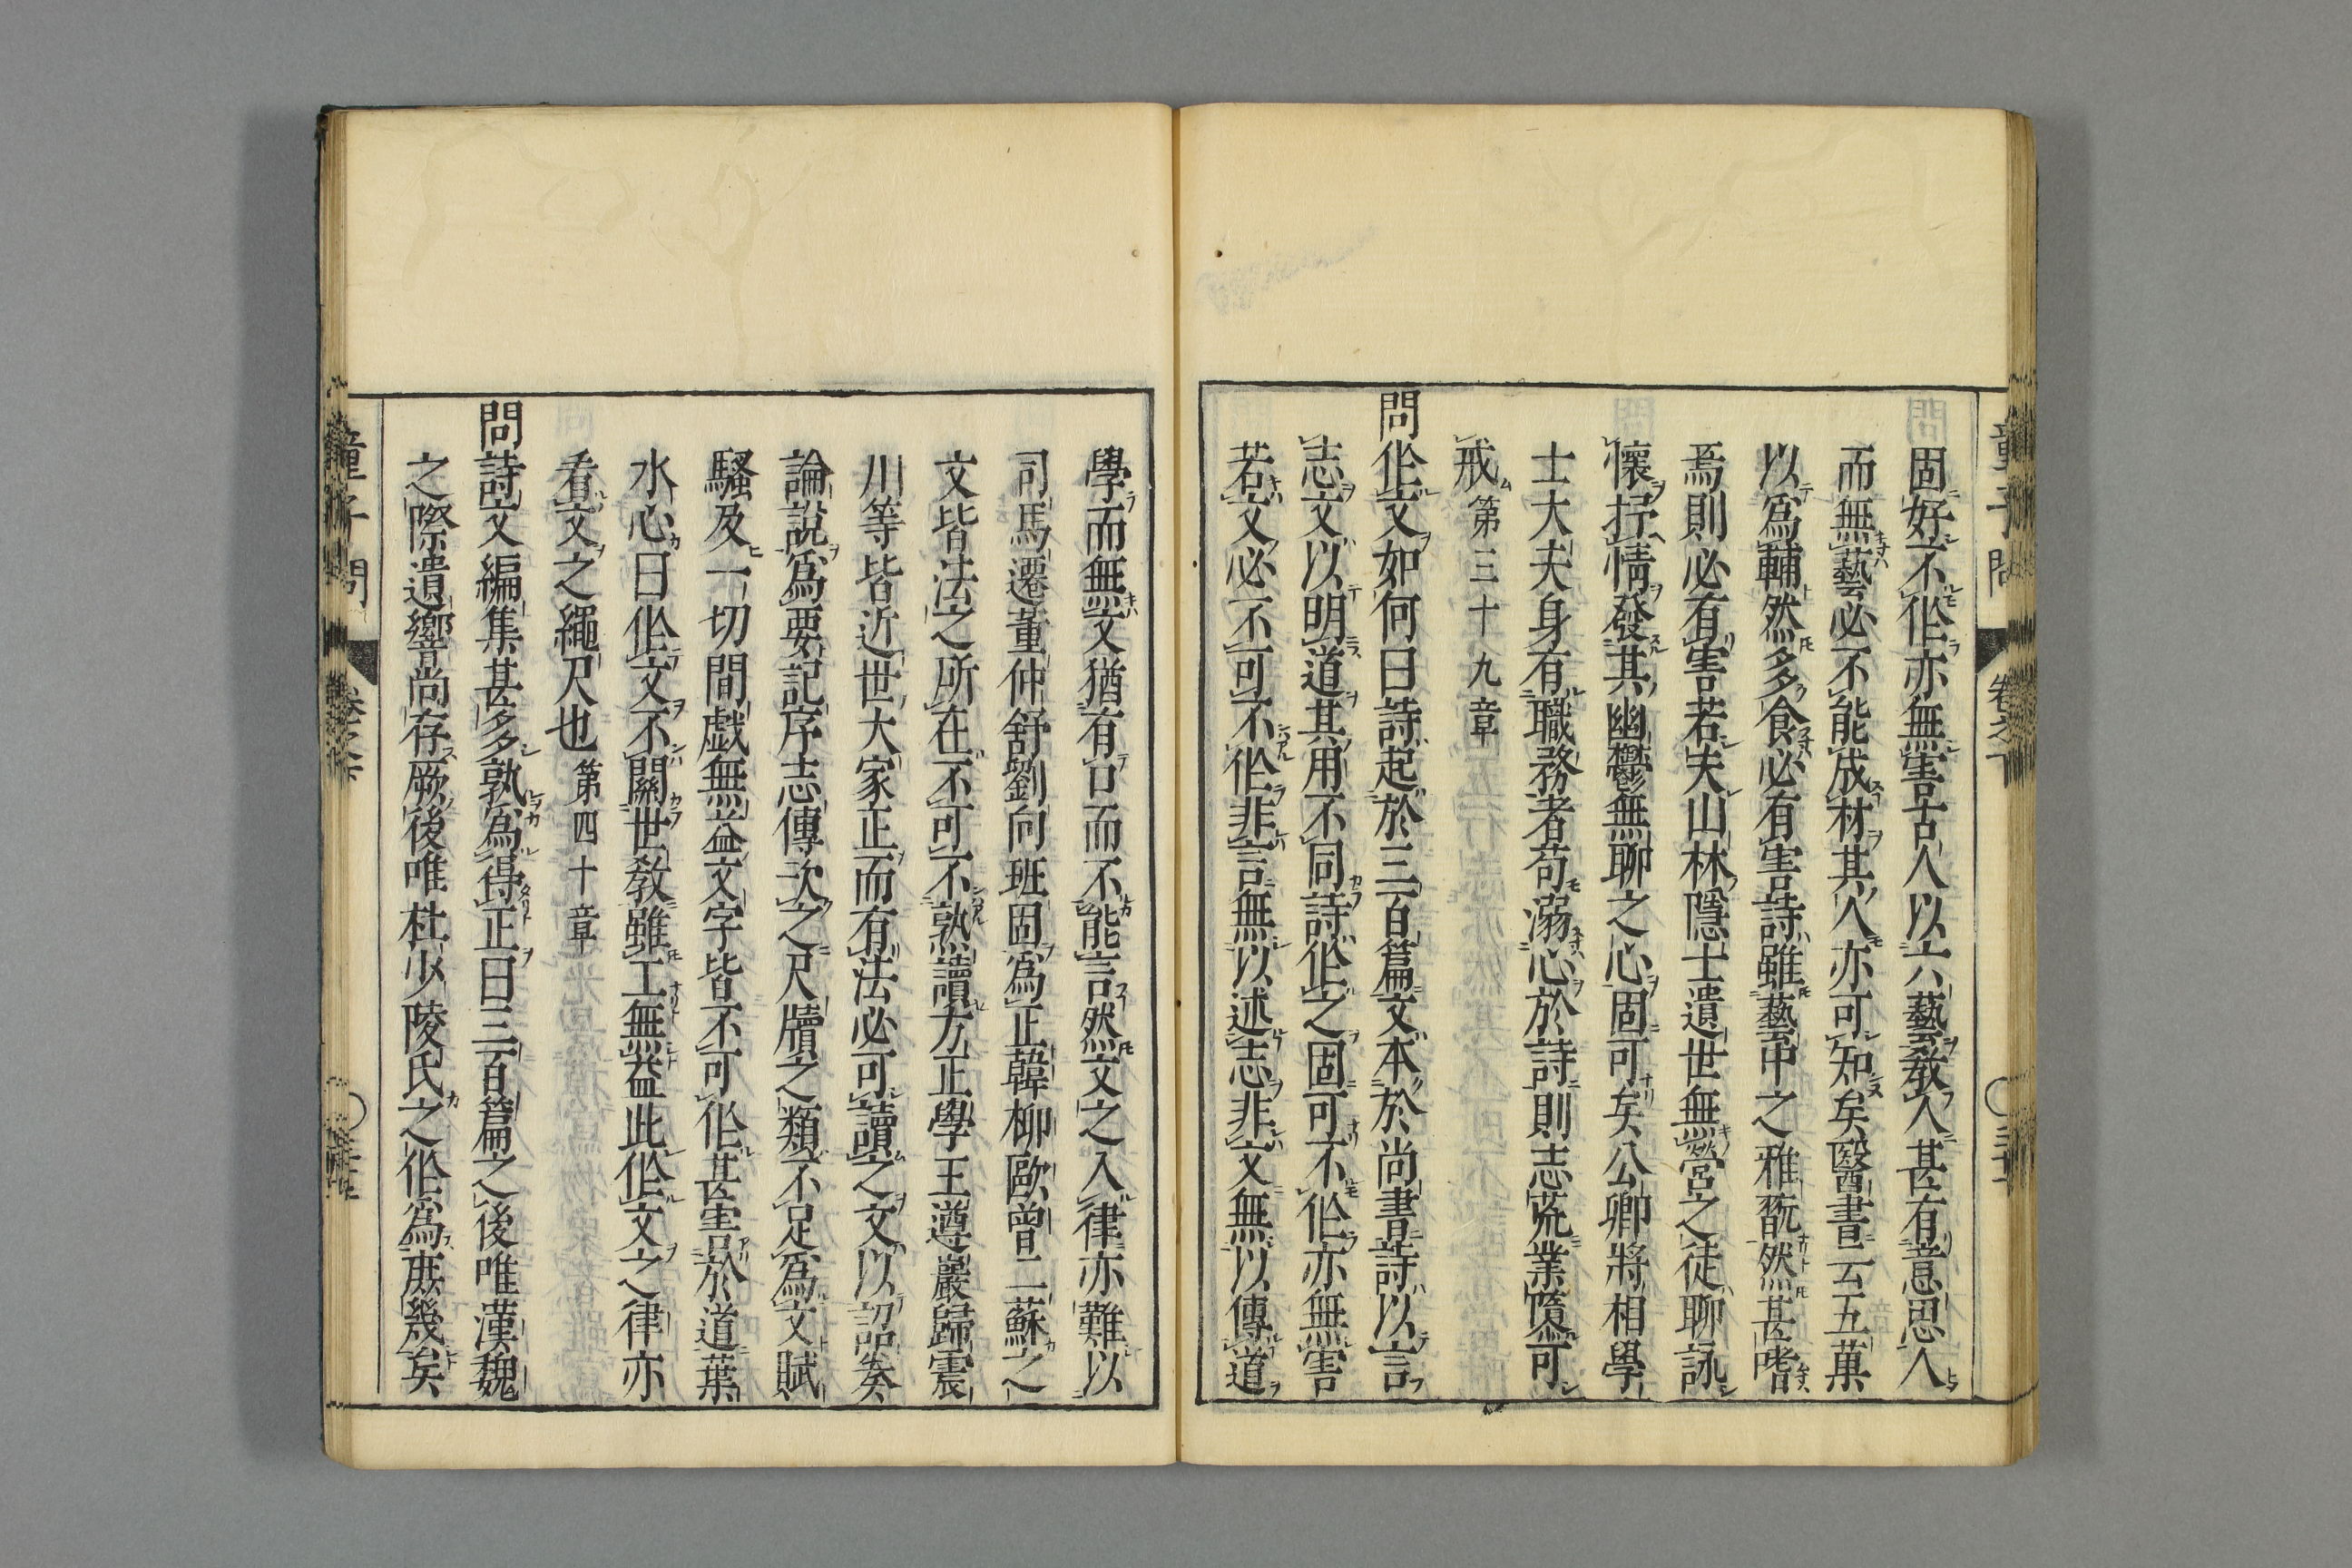 固好不作亦無害古人以六藝教人甚有意思人
而無藝必不能成材其人亦可知矣醫書云五菓
以爲輔然多食必有害詩雖藝中之雅翫然甚嗜
焉則必有害若夫山林隱士遺世無營之徒聊詠
懷抒情發其幽鬱無聊之心固可矣公卿將相學
士大夫身有職務者苟溺心於詩則志荒業隳可
戒第三十九章
問作文如何曰詩起於三百篇文本於尚書詩以言
志文以明道其用不同詩作之固可不作亦無害
若文必不可不作非言無以述志非文無以傳道
學而無文猶有口而不能言然文之入律亦難以
司馬遷董仲舒劉向班固爲正韓柳歐曾二蘇之
文皆法之所在不可不熟讀方正學王遵巖歸震
川等皆近世大家正而有法必可讀之文以詔奏
論說爲要記序志傳次之尺牘之類不足爲文賦
騷及一切間戲無益文字皆不可作甚害於道葉
水心曰作文不關世教雖工無益此作文之律亦
看文之繩尺也第四十章
問詩文編集甚多孰爲得正曰三百篇之後唯漢魏
之際遺響尚存厥後唯杜少陵氏之作爲庶幾矣
童子問
卷之下